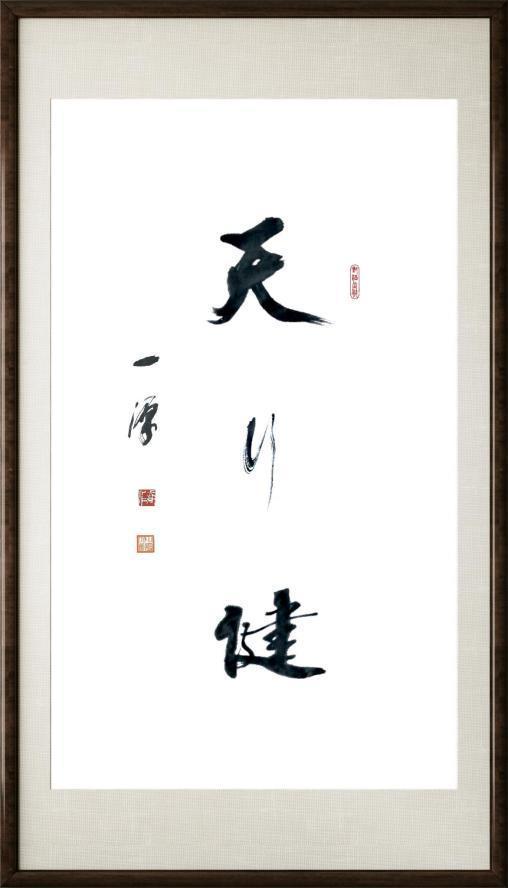 天行健
一源